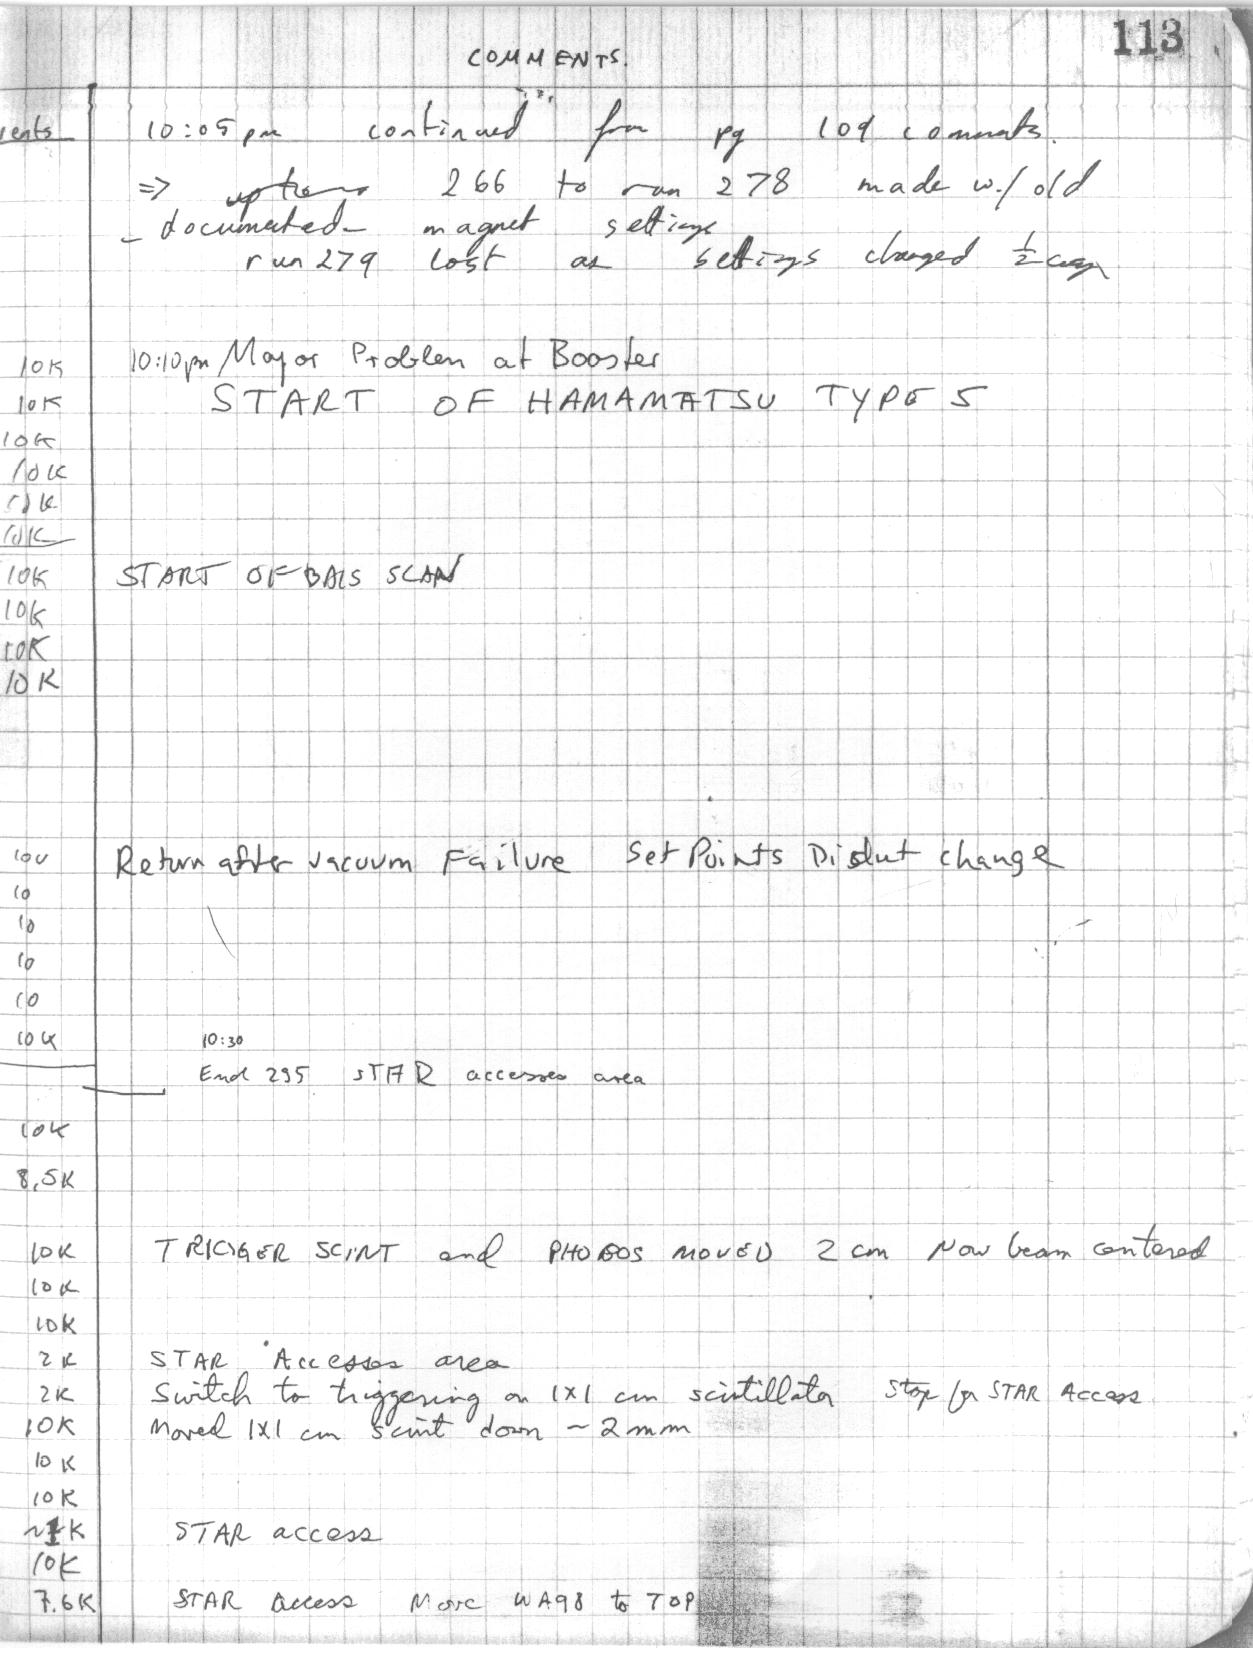 113
COMMENTS.
ents 10:05 pm continued from pg 109 comments.
=> 266 to run 278 made w./ old
- documented - magnet settings
run 279 lost as settings changed 1/2 way
10K 10:10pm Major Problem at Booster
10K START OF HAMAMATSU TYPE 5
10K
10K
10K
10K
10K START OF BAIS SCAN
10K
10K
10K
10K Return after vacuum Failure Set Points Didnt change
10
10
10
10
10K 10:30
End 295 STAR accesses area
10K
8.5K
10K TRIGGER SCINT and PHOBOS MOVED 2 cm Now beam centered
10K
10K
2K STAR Accesses area
2K Switch to triggering on 1X1 cm scintillator Stop for STAR Access.
10K Moved 1X1 cm scint down ~ 2mm
10K
10K
~1K STAR access
10K
7.6K STAR access Move WA98 to TOP